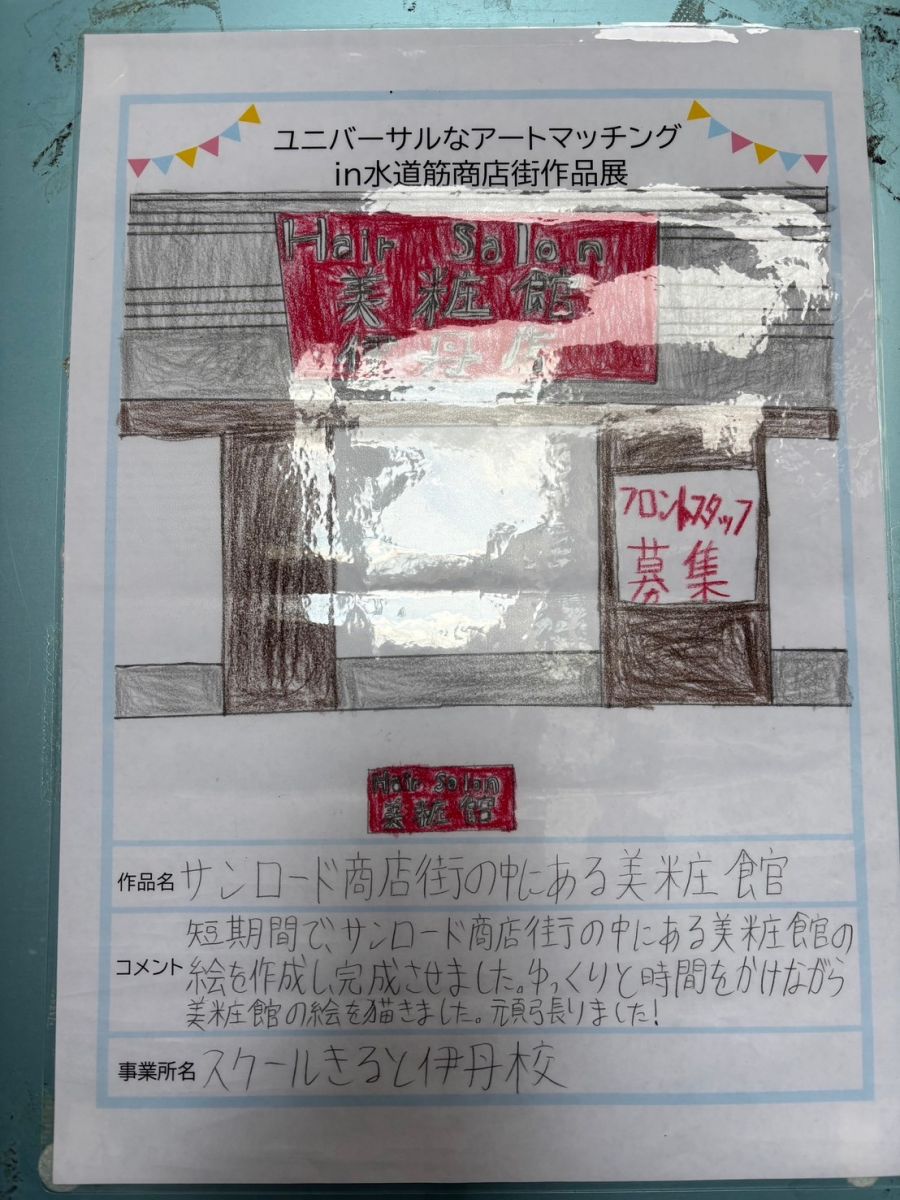 ユニバーサルなアートマッチング
in水道筋商店街作品展
Hair Salon
美粧館
伊丹店
フロントスタッフ
募集
Hair Salon
美粧館
作品名 サンロード商店街の中にある美粧館
コメント 短期間で、サンロード商店街の中にある美粧館の
絵を作成し、完成させました。ゆっくりと時間をかけながら
美粧館の絵を猫きました。頑張りました!
事業所名 スクールきると伊丹校